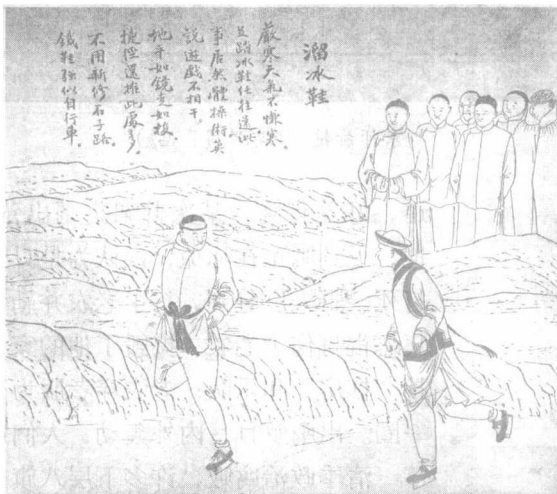 溜冰鞋
嚴寒天氣不憚寒。
足踏冰鞋任往還此
事居然體操術莫
說遊戲不相干。
地平如鏡走如梭。
捷徑還推此處多。
不用新修石子路。
鐵鞋強似自行車。